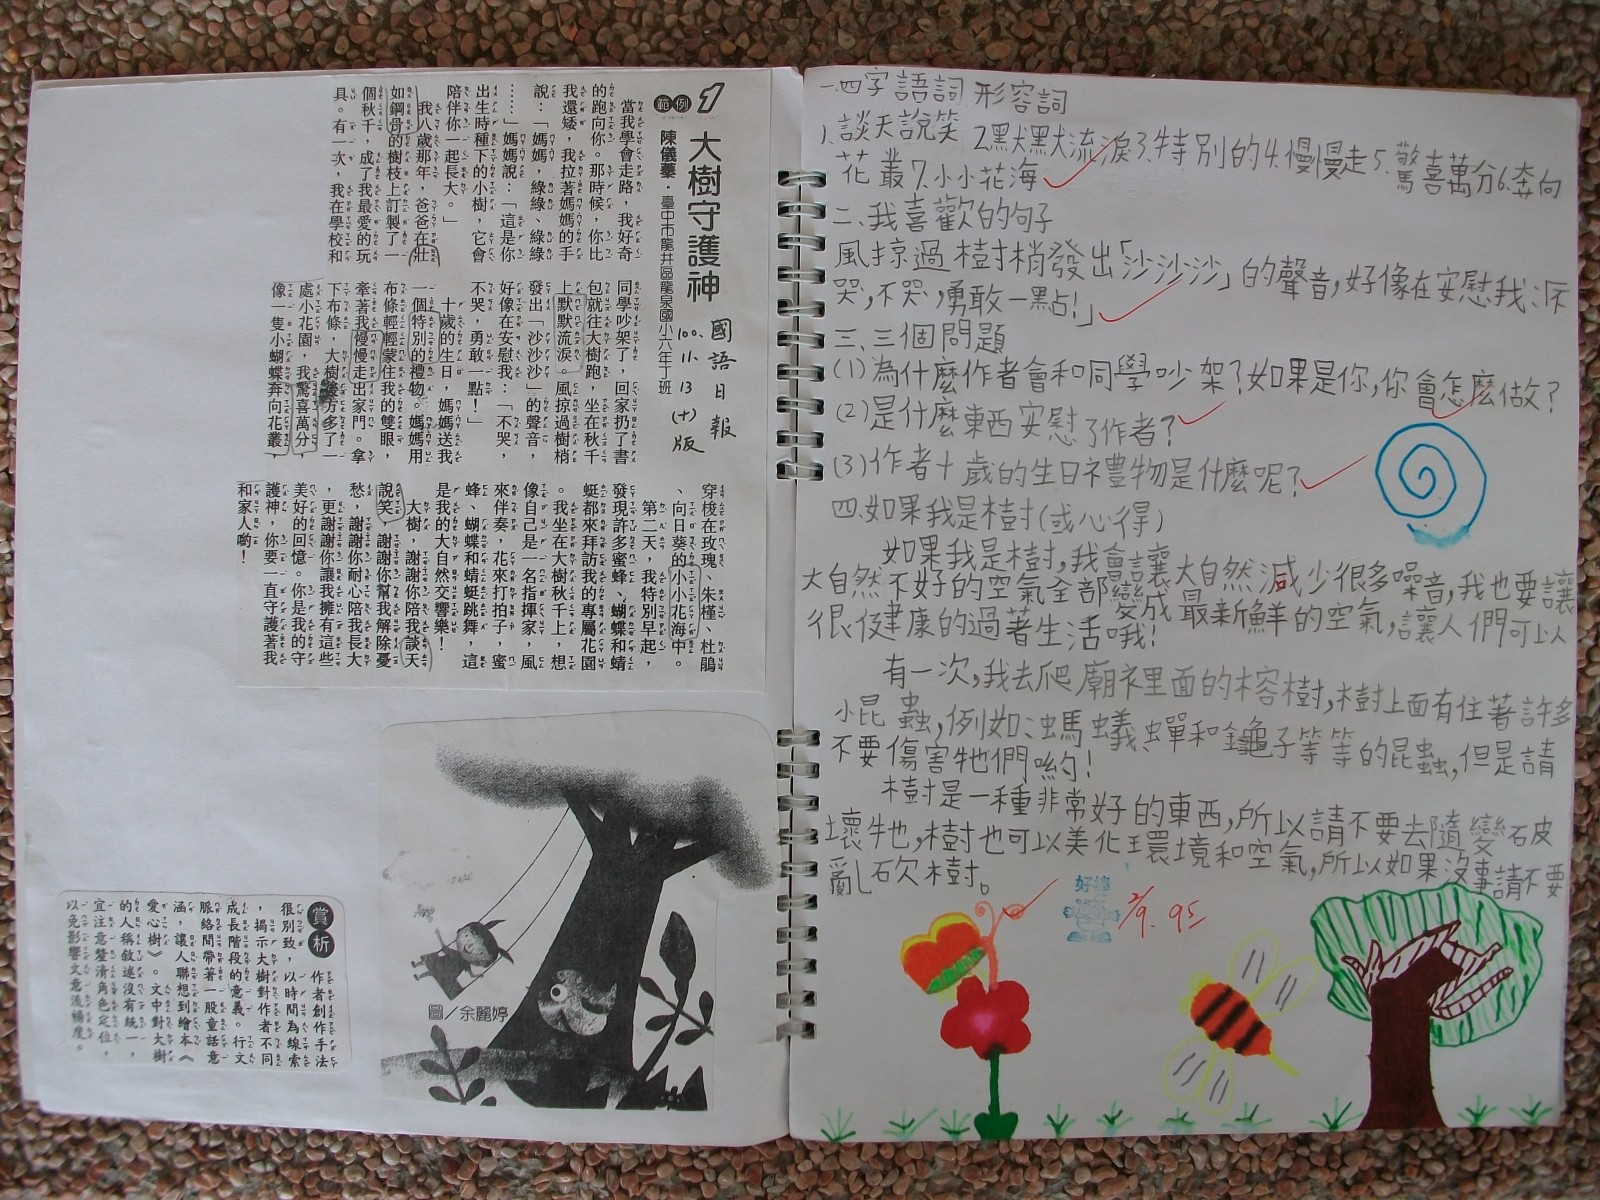 範例 1
大樹守護神
陳儀蓁・臺中市龍井區龍泉國小六年丁班
國語日報
100.11.13(十)版
當我學會走路，我好奇
的跑向你。那時候，你比
我還矮，我拉著媽媽的手
說：「媽媽，綠綠、綠綠
……」媽媽說：「這是你
出生時種下的小樹，它會
陪伴你一起長大。」
我八歲那年，爸爸在壯
如鋼骨的樹枝上訂製了一
個秋千，成了我最愛的玩
具。有一次，我在學校和
同學吵架了，回家扔了書
包就往大樹跑，坐在秋千
上默默流淚。風掠過樹梢
發出「沙沙沙」的聲音，
好像在安慰我：「不哭，
不哭，勇敢一點！」
十歲的生日，媽媽送我
一個特別的禮物。媽媽用
布條輕輕蒙住我的雙眼，
牽著我慢慢走出家門。拿
下布條，大樹後方多了一
處小花園，我驚喜萬分，
像一隻小蝴蝶奔向花叢，
穿梭在玫瑰、朱槿、杜鵑
、向日葵的小小花海中。
第二天，我特別早起，
發現許多蜜蜂、蝴蝶和蜻
蜓都來拜訪我的專屬花園
。我坐在大樹秋千上，想
像自己是一名指揮家，風
來伴奏，花來打拍子，蜜
蜂、蝴蝶和蜻蜓跳舞，這
是我的大自然交響樂！
大樹，謝謝你陪我談天
說笑，謝謝你幫我解除憂
愁，謝謝你耐心陪我長大
，更謝謝你讓我擁有這些
美好的回憶。你是我的守
護神，你要一直守護著我
和家人喲！
圖／余麗婷
賞析
作者創作手法
很別致，以時間為線索
，揭示大樹對作者不同
成長階段的意義。行文
脈絡間帶著一股童話意
涵，讓人聯想到繪本《
愛心樹》。文中對大樹
的人稱敘述沒有統一，
宜注意釐清角色定位，
以免影響文意流暢度。
一.四字語詞 形容詞
1.談天說笑 2.默默流淚3.特別的4.慢慢走5.驚喜萬分6.奔向
花叢7.小小花海
二、我喜歡的句子
風掠過樹梢發出「沙沙沙」的聲音,好像在安慰我:不
哭,不哭,勇敢一點!」
三、三個問題
(1)為什麼作者會和同學吵架?如果是你,你會怎麼做?
(2)是什麼東西安慰了作者?
(3)作者十歲的生日禮物是什麼呢?
四.如果我是樹(或心得)
如果我是樹,我會讓大自然減少很多噪音,我也要讓
大自然不好的空氣全部變成最新鮮的空氣,讓人們可以
很健康的過著生活哦!
有一次,我去爬廟裡面的榕樹,樹上面有住著許多
小昆蟲,例如:螞蟻、蟬和龜子等等的昆蟲,但是請
不要傷害牠們喲!
樹是一種非常好的東西,所以請不要去隨變破
壞牠,樹也可以美化環境和空氣,所以如果沒事請不要
亂砍樹。
好棒
2/9. 95